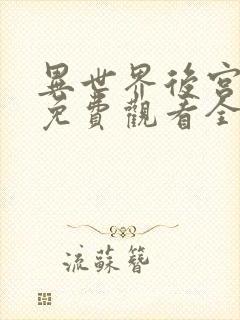 異世界後宮
免費觀看全
流蘇簪